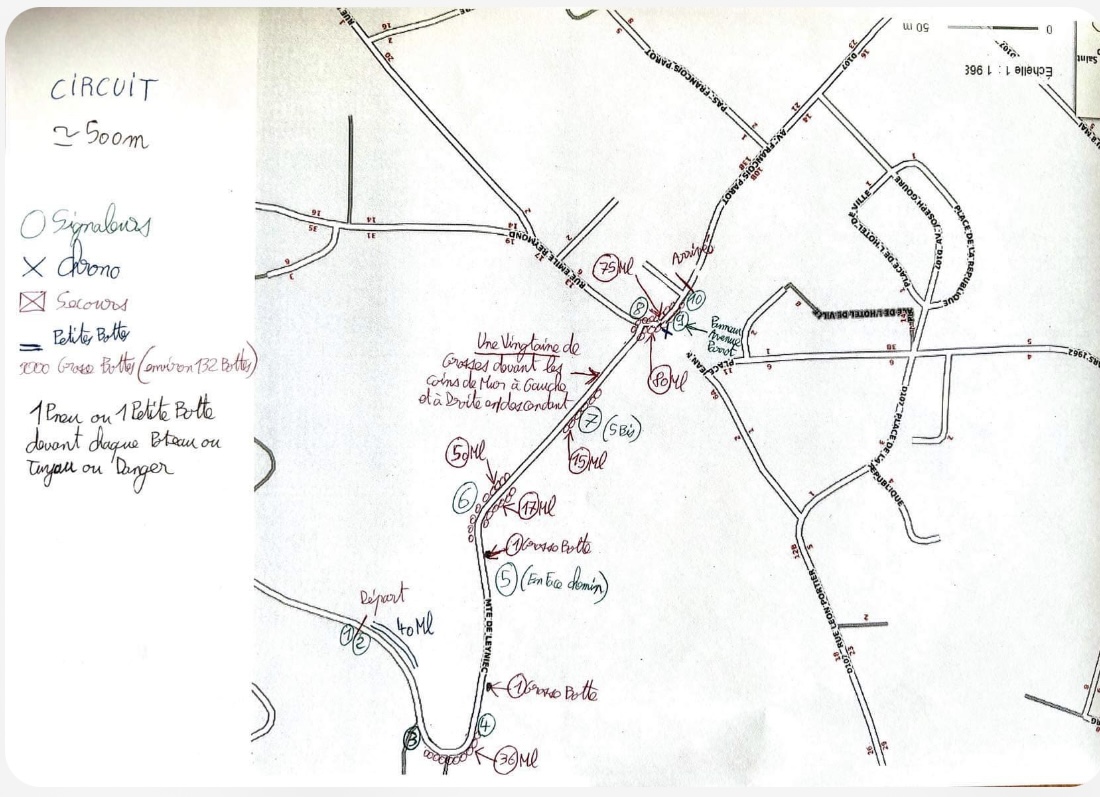 CIRCUIT
≃ 500m
Signaleurs
Chrono
Secours
Petites Botte
Grosse Bottes (environ 132 Bottes)
1 Pneu ou 1 Petite Botte
devant chaque Poteau ou
Tuyau ou Danger
50 m
0
Échelle 1 : 1 968
Saint
D107
PAS. FRANÇOIS PAROT
D107
AV. FRANÇOIS PAROT
RUE
RUE EMILE REMOND
PLACE DE L'HOTEL DE VILLE
D107 AV. JOSEPH GOURE
PLACE DE LA REPUBLIQUE
PLACE JEAN
D107 PLACE DE LA REPUBLIQUE
D107 RUE LEON PORTIER
MTE DE LEYNIEC
Arrivée
75 Ml
8
10
9
Panneau
Avenue
Parrot
80 Ml
Une Vingtaine de
Grosses devant les
coins de Mur à Gauche
et à Droite en descendant
7 (5 Bis)
15 Ml
50 Ml
6
17 Ml
1 Grosse Botte
5 (En Face chemin)
Départ
40 Ml
1 2
1 Grosse Botte
3
4
36 Ml